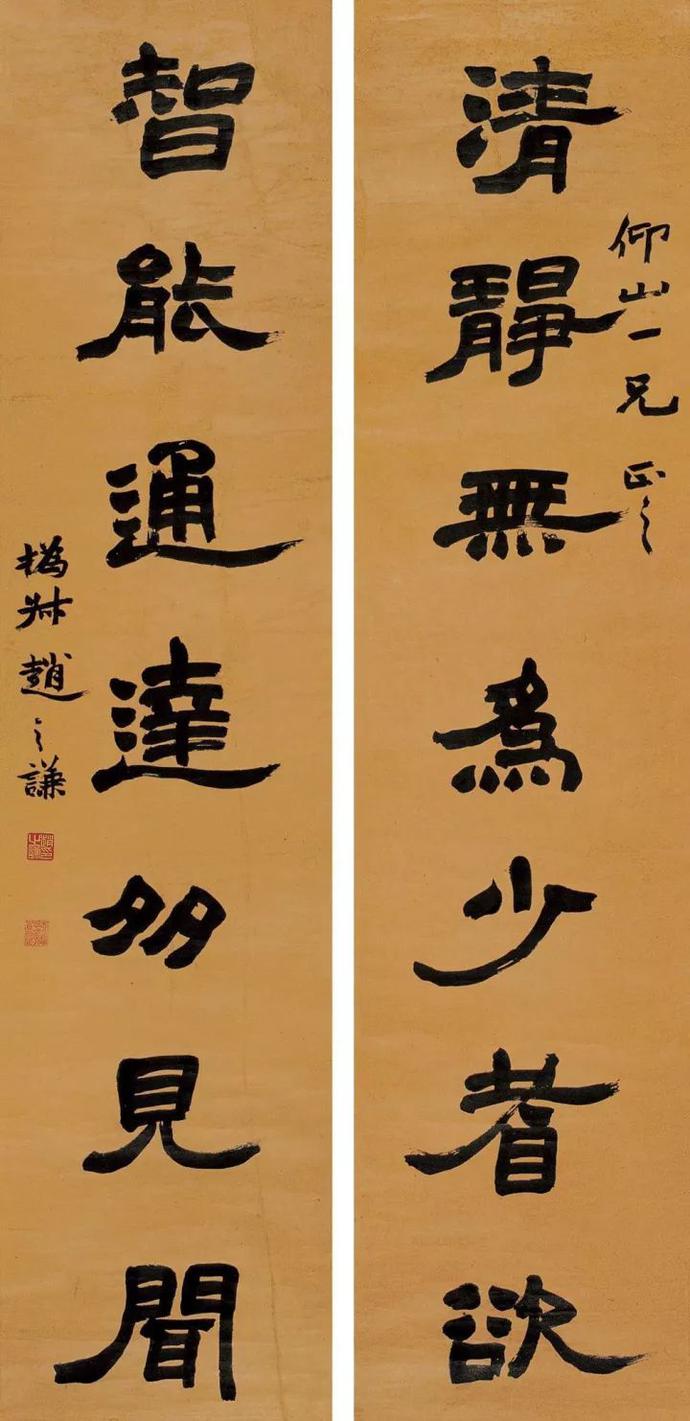 清靜無為少耆欲
仰山一兄正之
智能通達多見聞
撝叔趙之謙